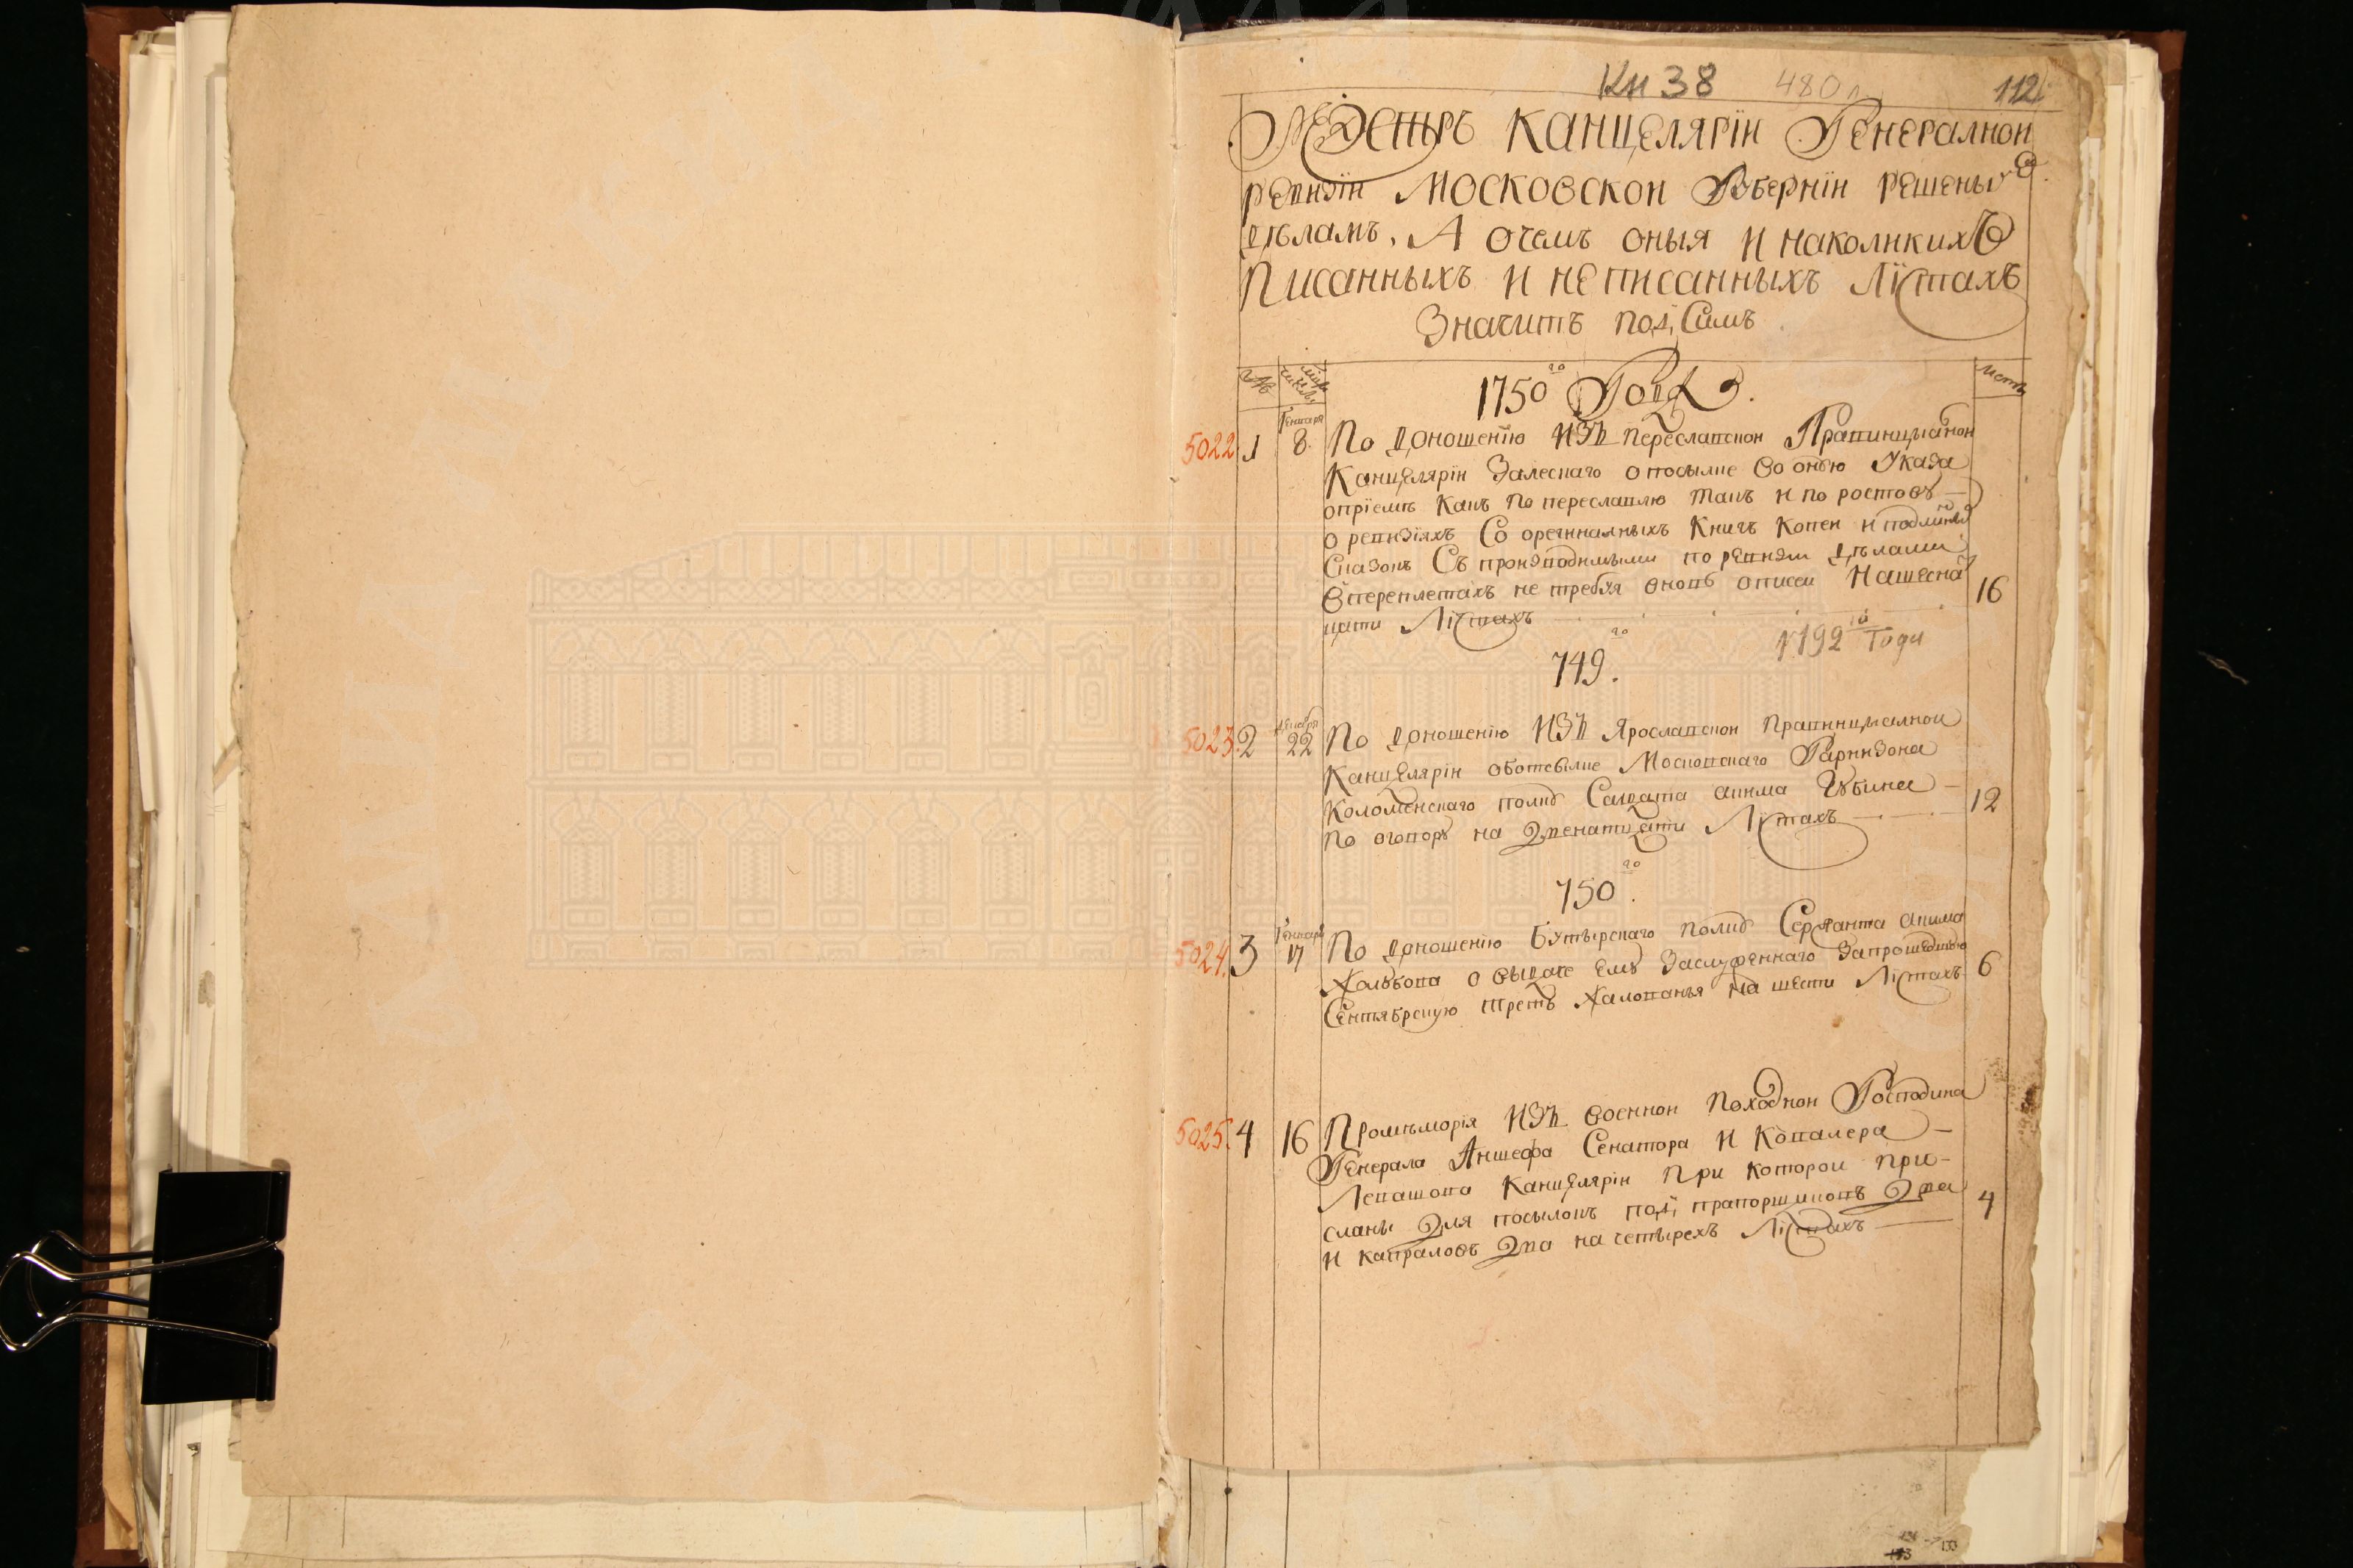 Кн 38 480 л 112
Реэстръ канцелярїи Генералной
ревизїи Московской Губернїи решенымъ
деламъ, А о чемъ оныя и на коликихъ
Писанныхъ и неписанныхъ Лїстахъ
Значитъ под Симъ
№ месяцъ и числы Листы
1750го Году
Генваря
5022 1 8 По доношенїю изъ переславской Правинцыалной
Канцелярїи Залескаго о посылке во оную Указа
о прїеме какъ по переславлю такъ и по ростову
о ревизїяхъ Со оригиналныхъ Книгъ Копеи и подлинныя
Сказокъ Съ производимыми по ревизи делами
в переплетахъ не требуя вновь описеи На шесна
цати Лїстахъ 16
1792го Годи
749го
декабря
5023 2 22 По доношенїю изъ Ярославской правинцыалной
Канцелярїи оботсылке Московскаго Гарнизона
Коломенскаго полку Салдата Губина
по оговору на Двенатцати Лїстахъ 12
750го
Генваря
5024 3 17 По доношенїю Бутырскаго полку Сержанта
о выдаче ему Заслуженнаго За прошедшую
Сентябрскую треть Жалованья на шести Лїстахъ 6
5025 4 16 Промеморїя изъ военной походной Господина
Генерала Аншефа Сенатора и Ковалера
Левашова Канцелярїи При которой при-
сланы Для посылокъ под прапорщиковъ Два
и капраловъ Два на четырехъ Лїстахъ 4